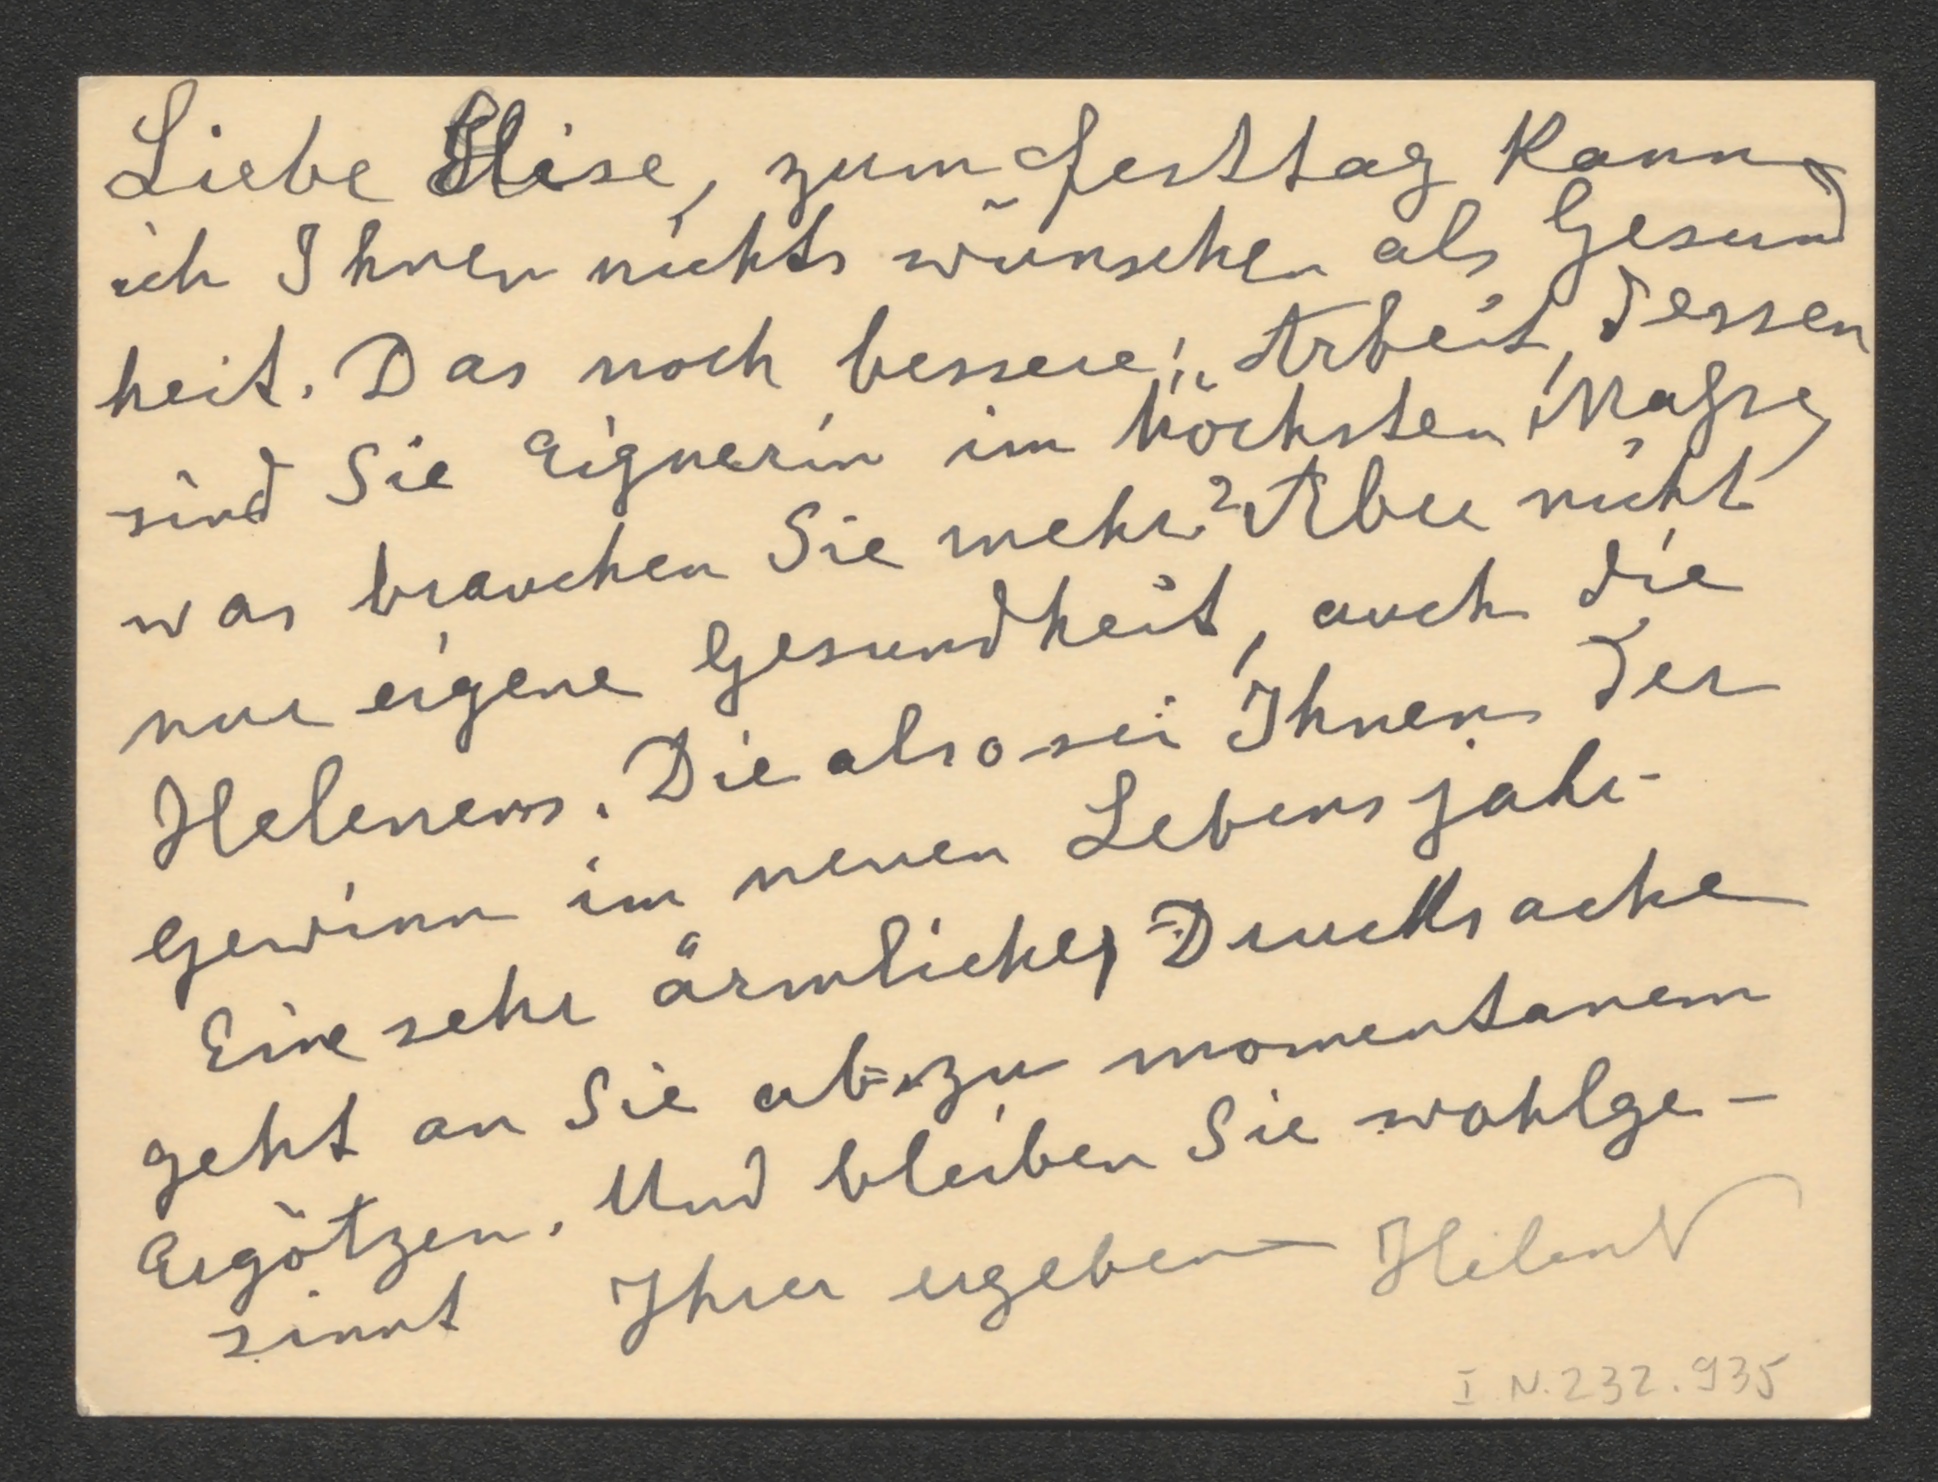 Liebe Elise, zum Festtag kann
ich Ihnen nichts wünschen als Gesund
heit. Das noch bessere: Arbeit, dessen
sind Sie Eignerin im höchsten Maße,
was brauchen Sie mehr? Aber nicht
nur eigene Gesundheit, auch die
Helenens. Die also sei Ihnen der
Gewinn im neuen Lebensjahr-
Eine sehr ärmliche, Drucksache
geht an Sie ab zu momentanem
Ergötzen. Und bleiben Sie wohlge-
sinnt Ihrer ergebenen
I. N. 232.935